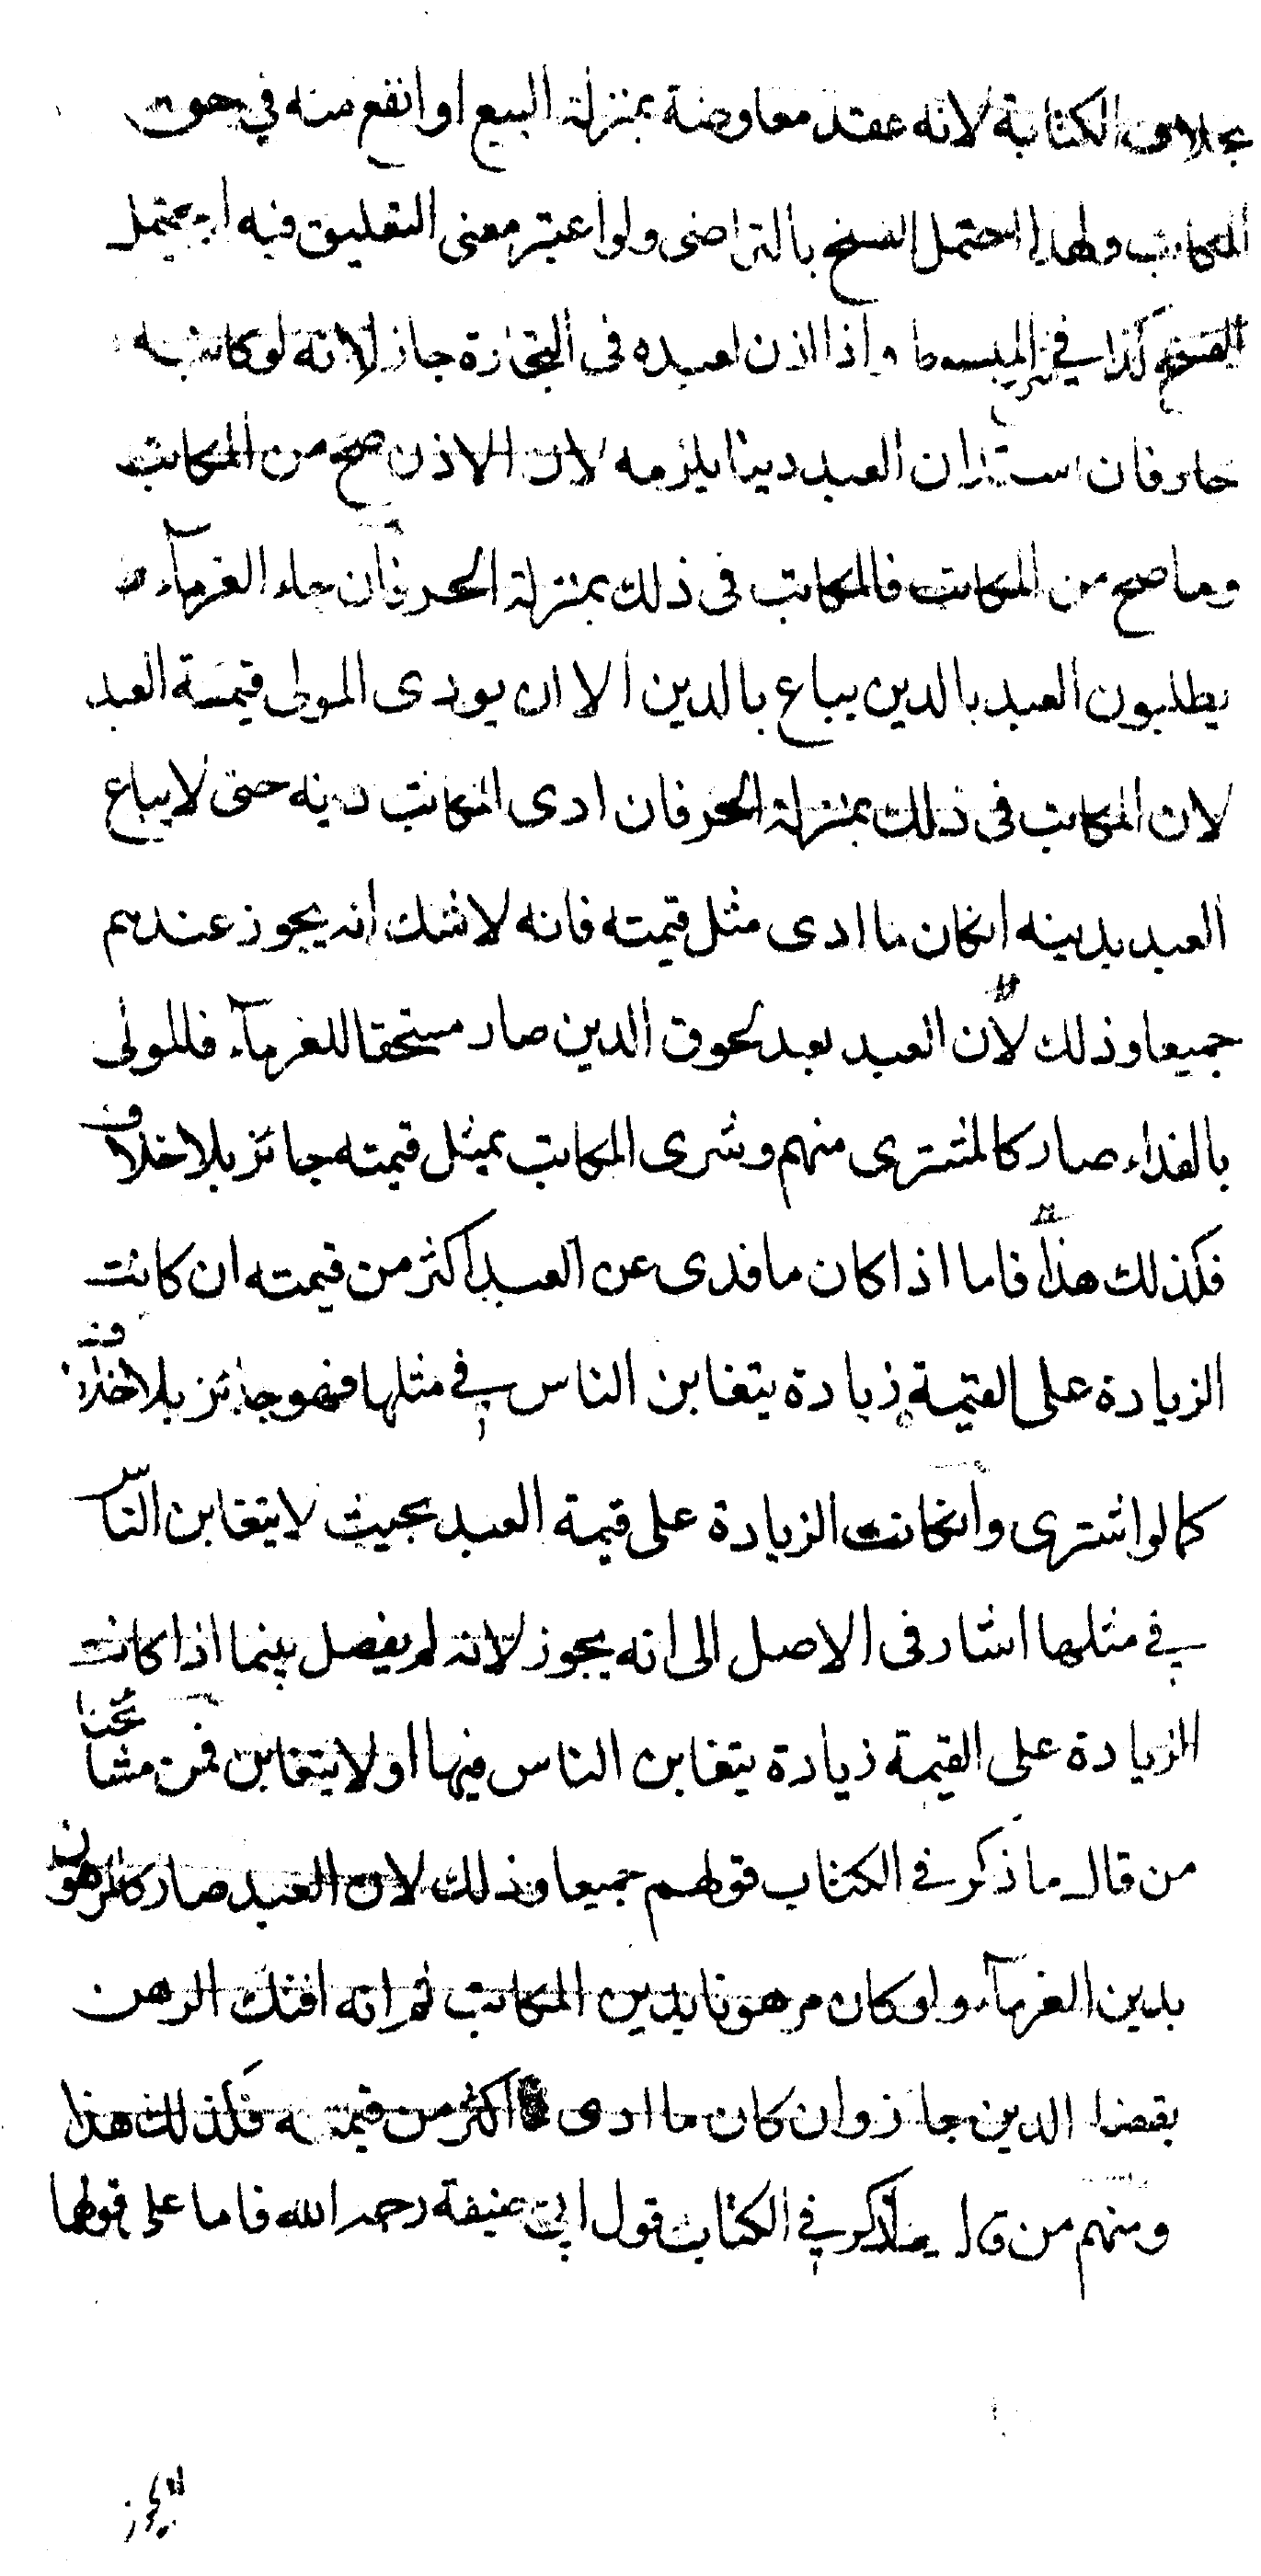 بخلاف الكتابة لانه عقد معاوضة بمنزلة البيع او انفع منه في حق
المكاتب ولهذا احتمل الفسخ بالتراضى ولو اعتبر معنى التعليق فيه لم يحتمل
الفسخ كذا في المبسوط واذا اذن لعبده فى التجارة جاز لانه لو كاتبه
جاز فان استدان العبد دينا يلزمه لان الاذن صح من المكاتب
وما صح من المكاتب فالمكاتب فى ذلك بمنزلة الحر فان جاء الغرمآء
يطلبون العبد بالدين يباع بالدين الا ان يودى المولى قيمة العبد
لان المكاتب فى ذلك بمنزلة الحر فان ادى المكاتب دينه حتى لا يباع
العبد بدينه انكان ما ادى مثل قيمته فانه لا شك انه يجوز عندهم
جميعا وذلك لان العبد بعد لحوق الدين صار مستحقا للغرمآء فللمولى
بالفداء صار كالمشترى منهم وشرى المكاتب بمثل قيمته جائز بلا خلاف
فكذلك هذا فاما اذا كان ما فدى عن العبد اكثر من قيمته ان كانت
الزيادة على القيمة زيادة يتغابن الناس في مثلها فهو جائز بلا خلاف
كما لو اشترى وانكانت الزيادة على قيمة العبد بحيث لا يتغابن الناس
في مثلها اشار فى الاصل الى انه يجوز لانه لم يفصل بينما اذا كانت
الزيادة على القيمة زيادة يتغابن الناس فيها او لا يتغابن فمن مشائخنا
من قال ما ذكر في الكتاب قولهم جميعا وذلك لان العبد صار كالمرهون
بدين الغرمآء ولو كان مرهونا بدين المكاتب ثم انه افتك الرهن
بقضا الدين جاز وان كان ما ادى اكثر من قيمته فكذلك هذا
ومنهم من قال ما ذكر في الكتاب قول ابي حنيفة رحمه الله فاما على قولهما
لا يجوز